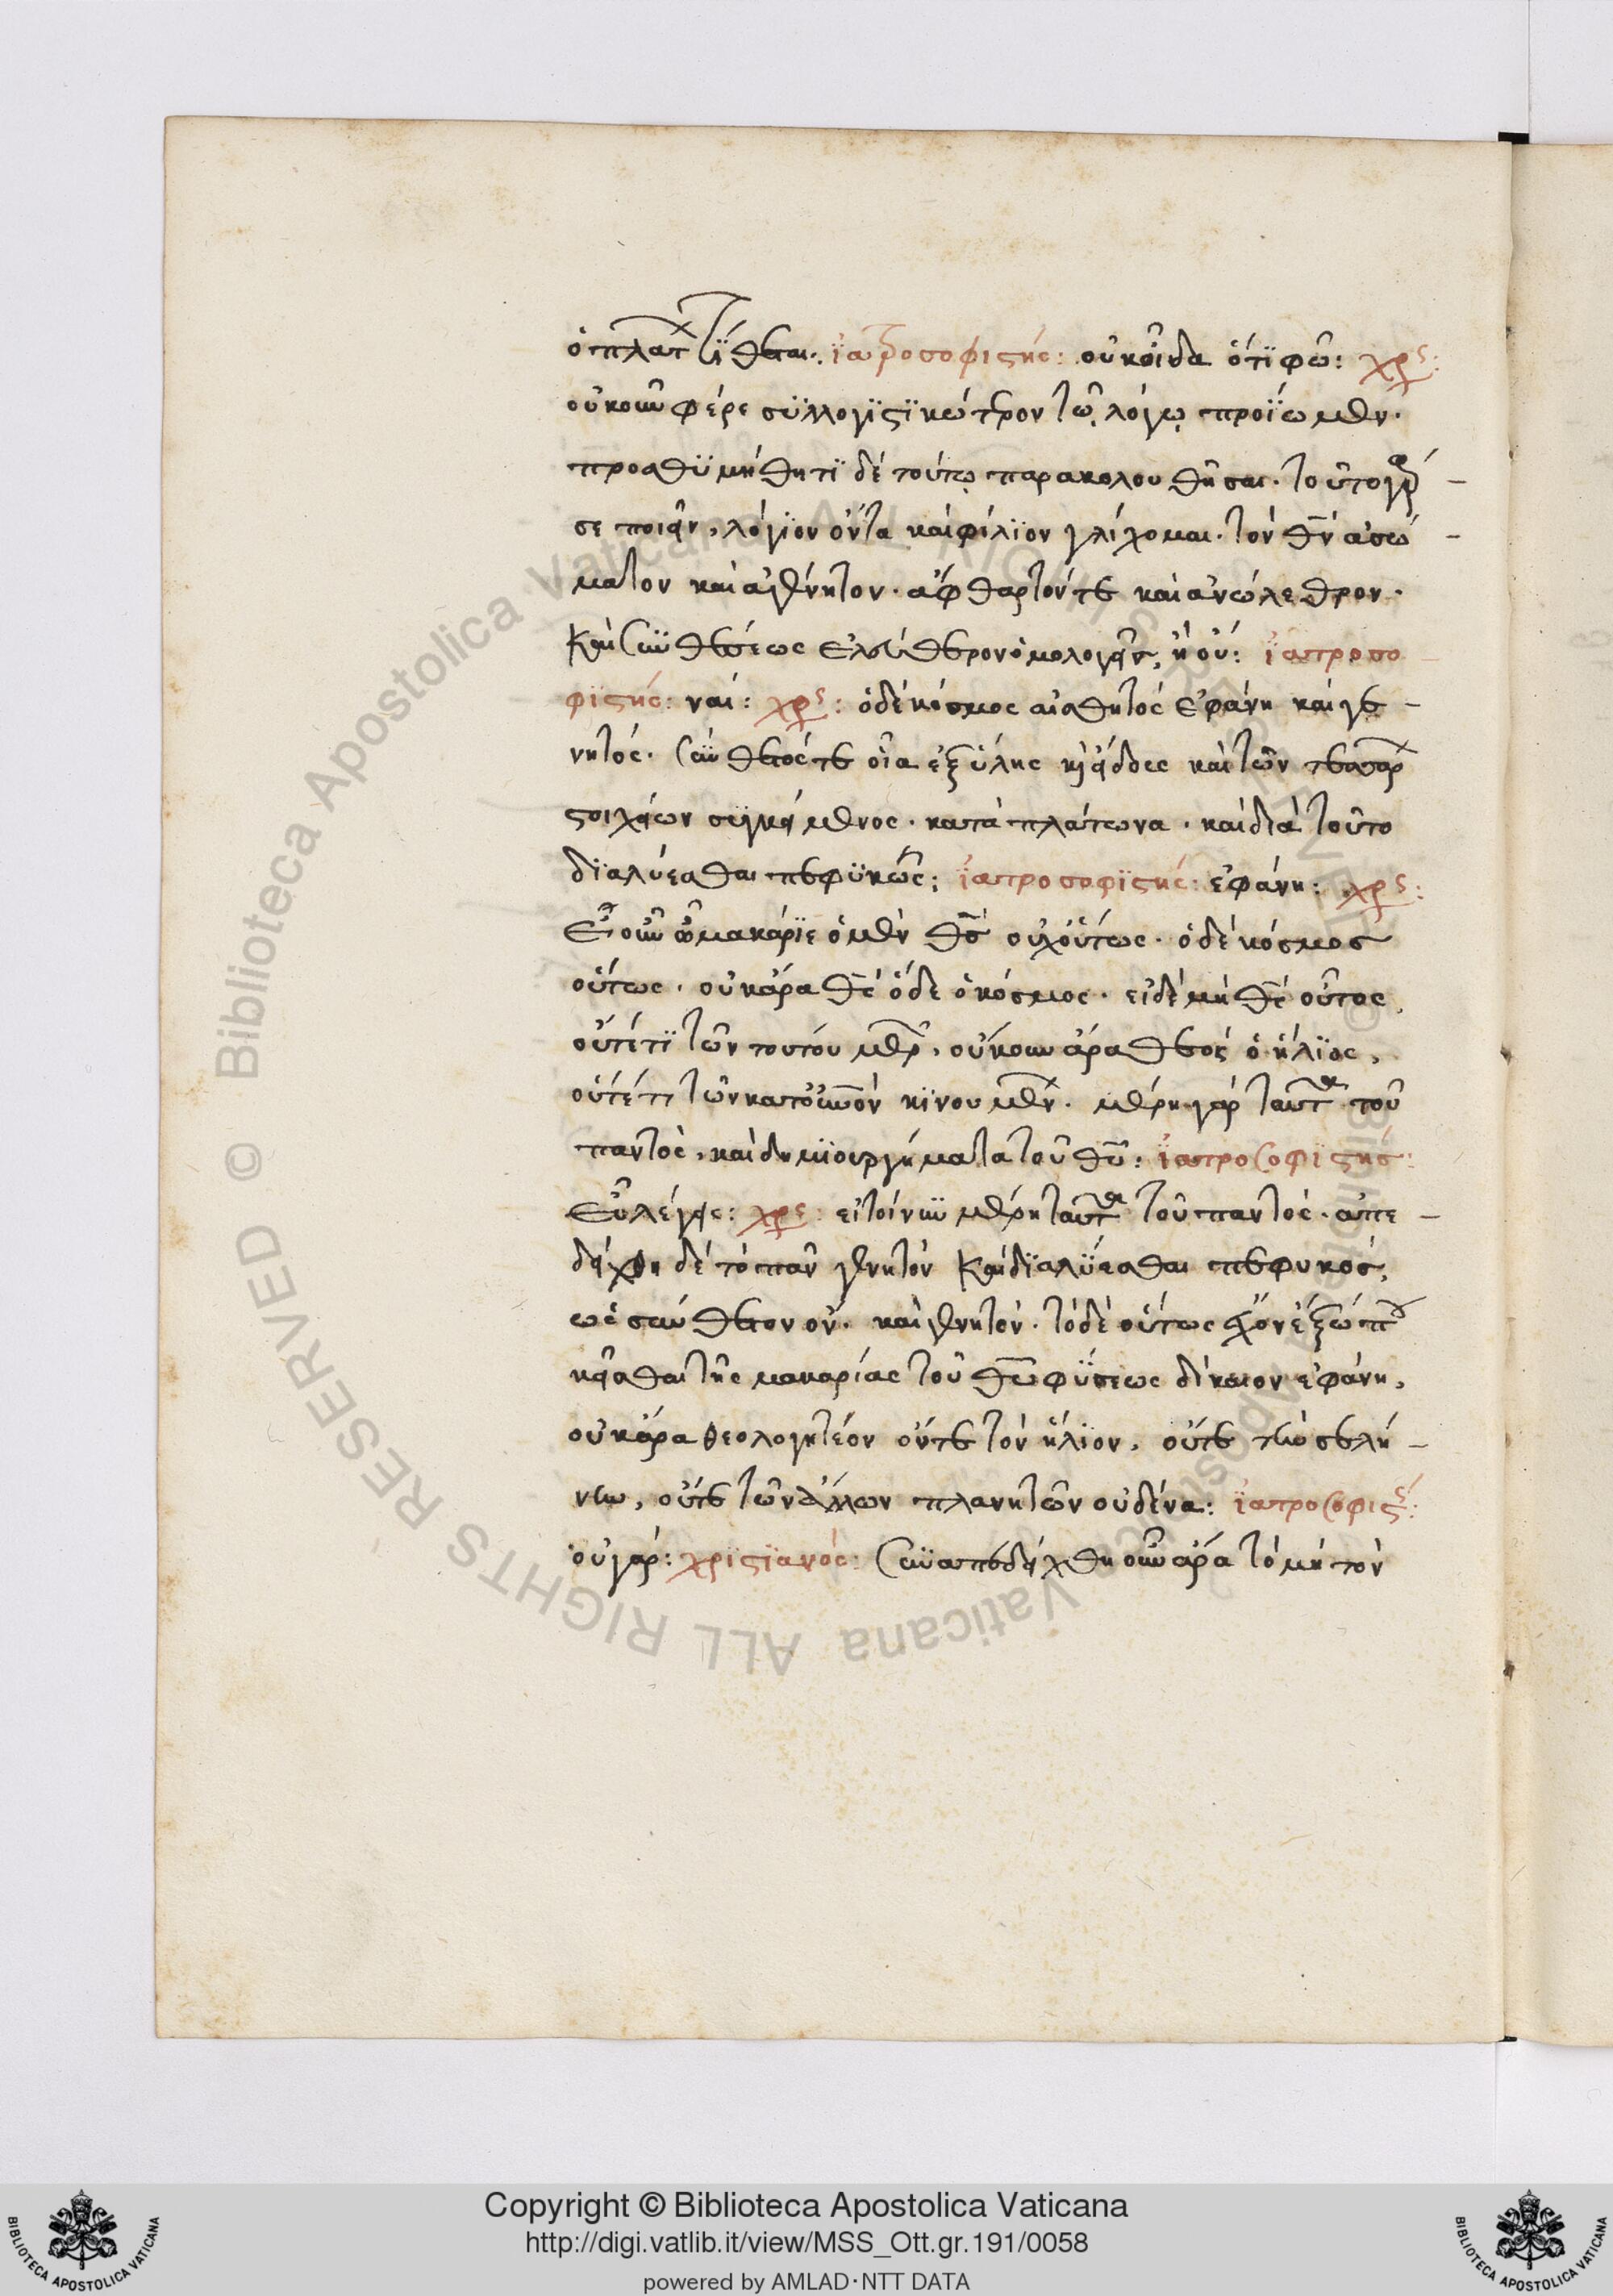 ὁ πλάτ τίθεται: ἰατροσοφιστής: οὐκ οἶδα ὅτι φῶ: χρς:
οὐκοῦν φέρε συλλογιστικώτερον τῶ λόγω προΐωμεν.
προσθυμήθητι δὲ τούτω παρακολουθῆσαι. τοῦτο γάρ
σε ποιεῖν, λόγιον ὄντα καὶ φίλιον γλίχομαι. τὸν θν ἀσώ
ματον καὶ ἀγένητον. ἄφθαρτόν τε καὶ ἀνώλεθρον.
καὶ συνθέσεως ἐλεύθερον ὁμολογεῖς, ἢ οὔ: ἰατροσο
φιστής: ναί: χρς: ὁ δὲ κόσμος αἰσθητὸς ἐφάνη καὶ γε
νητός. σύνθετός τε οἷα ἐξ ὕλης κ εἴδους καὶ τῶν τεσσάρ
στοιχείων συγκείμενος. κατὰ πλάτωνα. καὶ διὰ τοῦτο
διαλύεσθαι πεφυκώς: ἰατροσοφιστής: ἐφάνη: χρς:
Εἰ οὖν ὦ μακάριε ὁ μὲν θς οὐχ οὕτως. ὁ δὲ κόσμος
οὕτως. οὐκ ἄρα θς ὅδε ὁ κόσμος. εἰ δὲ μὴ θς οὗτος,
οὔτέ τι τῶν τούτου μερ, οὔκουν ἄρα θεὸς ὁ ἥλιος,
οὔτέ τι τῶν κατ' οὐνὸν κινουμέν. μέρη γὰρ ταῦτα τοῦ
παντὸς, καὶ δημιουργήματα τοῦ θυ: ἰατροσοφιστής:
Εὖ λέγεις: χρς: εἰ τοίνυν μέρη ταῦτα τοῦ παντός. ἀπε
δείχθη δὲ τὸ πᾶν γενητὸν καὶ διαλύεσθαι πεφυκός,
ὡς σύνθετον ὄν. καὶ γενητόν. τὸ δὲ οὕτως ἔχον ἐξωτ
κεῖσθαι τῆς μακαρίας τοῦ θυ φύσεως δίκαιον ἐφάνη,
οὐκ ἄρα θεολογητέον οὔτε τὸν ἥλιον, οὔτε τὴν σελή
νην, οὔτε τῶν ἄλλων πλανητῶν οὐδένα: ἰατροσοφιστς:
οὐ γάρ: χριστιανός: συναπεδείχθη οὖν ἄρα τὸ μὴ τὸν
Copyright © Biblioteca Apostolica Vaticana
http://digi.vatlib.it/view/MSS_Ott.gr.191/0058
powered by AMLAD·NTT DATA